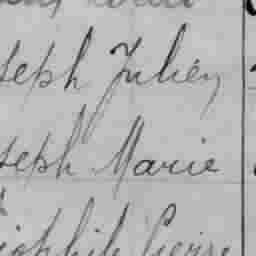 seph Julien
seph Marie
iophile Pierre